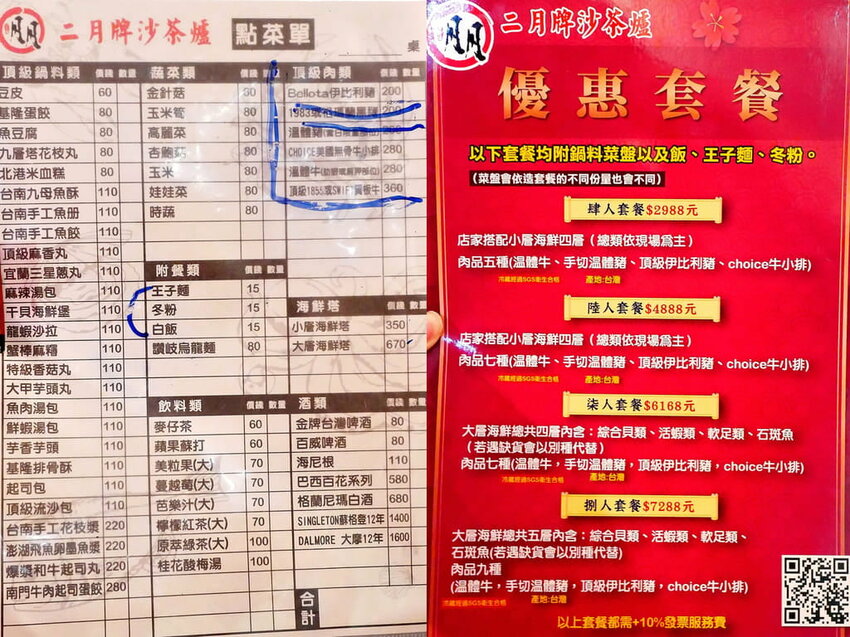 二月牌沙茶爐 點菜單
桌
頂級鍋料類 價錢 數量
豆皮 60
基隆蛋餃 80
魚豆腐 80
九層塔花枝丸 80
北港米血糕 80
台南九母魚酥 110
台南手工魚册 110
台南手工魚餃 110
頂級麻香丸 110
宜蘭三星蔥丸 110
麻辣湯包 110
干貝海鮮堡 110
龍蝦沙拉 110
蟹棒麻糬 110
特級香菇丸 110
大甲芋頭丸 110
魚肉湯包 110
鮮蝦湯包 110
芋香芋頭 110
基隆排骨酥 110
起司包 110
頂級流沙包 110
台南手工花枝漿 220
澎湖飛魚卵墨魚漿 220
爆漿和牛起司丸 220
南門牛肉起司蛋餃 280
蔬菜類 價錢 數量
金針菇 80
玉米筍 80
高麗菜 80
杏鮑菇 80
玉米 80
娃娃菜 80
時蔬 80
附餐類 價錢 數量
王子麵 15
冬粉 15
白飯 15
讚岐烏龍麵 80
飲料類 價錢 數量
麥仔茶 60
蘋果蘇打 60
美粒果(大) 70
蔓越莓(大) 70
芭樂汁(大) 70
檸檬紅茶(大) 70
原萃綠茶(大) 100
桂花酸梅湯 100
頂級肉類 價錢 數量
Bellota伊比利豬 200
溫體豬
CHOICE美國無骨牛小排 280
溫體牛 280
360
海鮮塔 價錢 數量
小層海鮮塔 350
大層海鮮塔 670
酒類 價錢 數量
金牌台灣啤酒 80
百威啤酒 80
海尼根 110
巴西百花系列 580
格蘭尼瑪白酒 680
SINGLETON蘇格登12年 1400
DALMORE 大摩12年 1600
合計
二月牌沙茶爐
優惠套餐
以下套餐均附鍋料菜盤以及飯、王子麵、冬粉。
(菜盤會依造套餐的不同份量也會不同)
肆人套餐$2988元
店家搭配小層海鮮四層（總類依現場爲主）
肉品五種(溫體牛、手切溫體豬、頂級伊比利豬、choice牛小排)
冷藏經過SGS衛生合格 產地:台灣
陸人套餐$4888元
店家搭配小層海鮮四層（總類依現場爲主）
肉品七種(溫體牛、手切溫體豬、頂級伊比利豬、choice牛小排)
冷藏經過SGS衛生合格 產地:台灣
柒人套餐$6168元
大層海鮮總共四層內含：綜合貝類、活蝦類、軟足類、石斑魚
（若遇缺貨會以別種代替）
肉品七種(溫體牛，手切溫體豬，頂級伊比利豬，choice牛小排)
冷藏經過SGS衛生合格 產地:台灣
捌人套餐$7288元
大層海鮮總共五層內含：綜合貝類、活蝦類、軟足類、
石斑魚(若遇缺貨會以別種代替)
肉品九種
(溫體牛，手切溫體豬，頂級伊比利豬，choice牛小排)
冷藏經過SGS衛生合格 產地:台灣
以上套餐都需+10%發票服務費